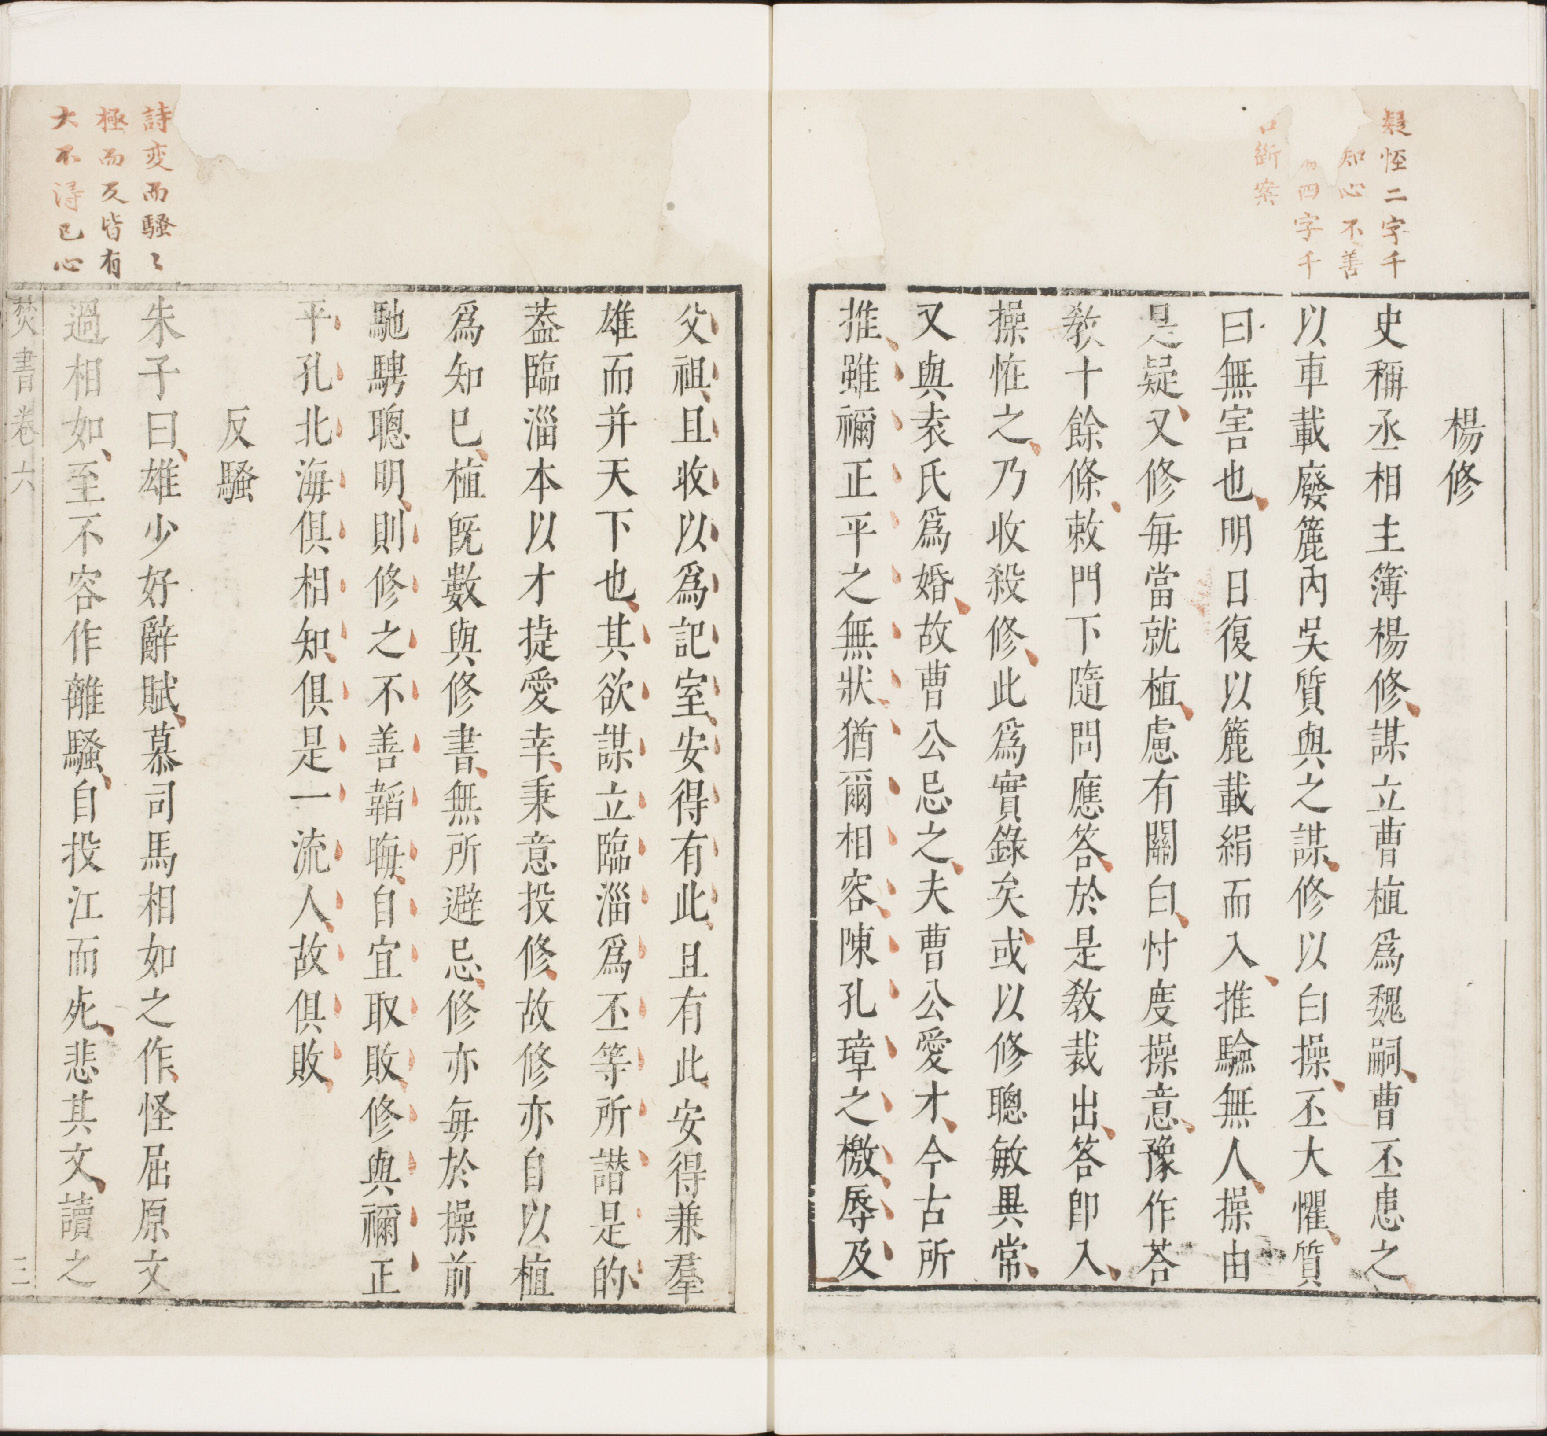 疑怪二字千
知心不善
四字千
斷案
楊修
史稱丞相主簿楊修謀立曹植爲魏嗣曹丕患之
以車載廢簏內吳質與之謀修以白操丕大懼質
曰無害也明日復以簏載絹而入推驗無人操由
是疑又修每當就植慮有關白忖度操意豫作荅
敎十餘條敕門下隨問應答於是敎裁出答卽入
操怪之乃收殺修此爲實錄矣或以修聰敏異常
又與袁氏爲婚故曹公忌之夫曹公愛才今古所
推雖禰正平之無狀猶爾相容陳孔璋之檄辱及
父祖且收以爲記室安得有此且有此安得兼羣
雄而并天下也其欲謀立臨淄爲丕等所譖是的
葢臨淄本以才捷愛幸秉意投修故修亦自以植
爲知己植旣數與修書無所避忌修亦每於操前
馳騁聰明則修之不善韜晦自宜取敗修與禰正
平孔北海俱相知俱是一流人故俱敗
反騷
詩变而騷〻
極而反皆有
大不淂已心
朱子曰雄少好辭賦慕司馬相如之作怪屈原文
過相如至不容作離騷自投江而死悲其文讀之
焚書卷六
三